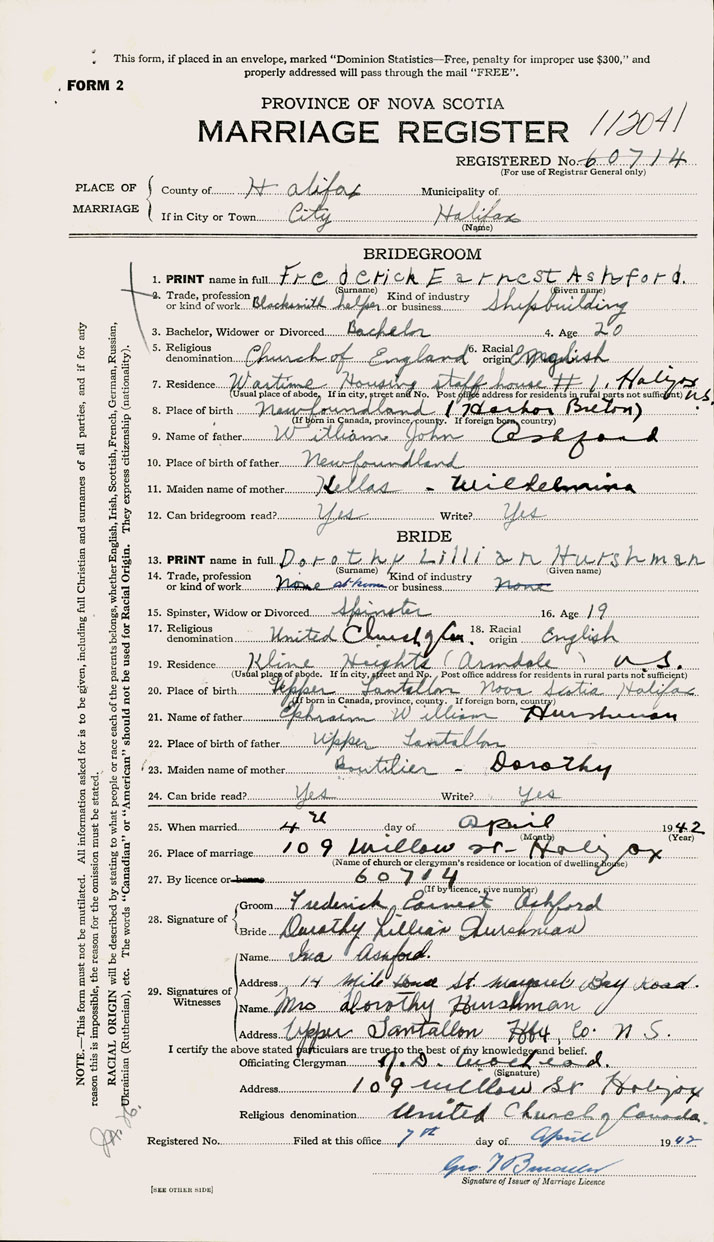 This form, if placed in an envelope, marked "Dominion Statistics—Free, penalty for improper use $300," and
properly addressed will pass through the mail "FREE".
FORM 2
PROVINCE OF NOVA SCOTIA
MARRIAGE REGISTER 112041
REGISTERED No. 60714
(For use of Registrar General only)
PLACE OF MARRIAGE
County of Halifax Municipality of
If in City or Town City Halifax
(Name)
BRIDEGROOM
1. PRINT name in full Frederick Earnest Ashford.
(Surname) (Given name)
2. Trade, profession or kind of work Blacksmith helper Kind of industry or business Shipbuilding
3. Bachelor, Widower or Divorced Bachelor 4. Age 20
5. Religious denomination Church of England 6. Racial origin English
7. Residence Wartime Housing staff house # 1, Halifax N.S.
(Usual place of abode. If in city, street and No. Post office address for residents in rural parts not sufficient)
8. Place of birth Newfoundland (Harbor Breton)
(If born in Canada, province, county. If foreign born, country)
9. Name of father William John Ashford
10. Place of father Newfoundland
11. Maiden name of mother Kellas - Wilhelmina
12. Can bridegroom read? Yes Write? Yes
BRIDE
13. PRINT name in full Dorothy Lillian Hurshman
(Surname) (Given name)
14. Trade, profession or kind of work None at home Kind of industry or business None
15. Spinster, Widow or Divorced Spinster 16. Age 19
17. Religious denomination United Church of Can. 18. Racial origin English
19. Residence Kline Heights (Armdale) N.S.
(Usual place of abode. If in city, street and No. Post office address for residents in rural parts not sufficient)
20. Place of birth Upper Tantallon Nova Scotia Halifax
(If born in Canada, province, county. If foreign born, country)
21. Name of father Ephraim William Hurshman
22. Place of birth of father Upper Tantallon
23. Maiden name of mother Boutilier - Dorothy
24. Can bride read? Yes Write? Yes
25. When married 4th day of April 1942
(Month) (Year)
26. Place of marriage 109 Willow St - Halifax
(Name of church or clergyman's residence or location of dwelling house)
27. By licence or banns 60714
(If by licence, give number)
28. Signature of
Groom Frederick Earnest Ashford
Bride Dorothy Lillian Hurshman
29. Signatures of Witnesses
Name Ina Ashford.
Address 14 Mile House St. Margarets Bay Road.
Name Mrs Dorothy Hurshman
Address Upper Tantallon Hfx, Co. N S.
I certify the above stated particulars are true to the best of my knowledge and belief.
Officiating Clergyman
(Signature)
Address 109 Willow St Halifax
Religious denomination United Church of Canada.
Registered No. Filed at this office 7th day of April 1942
Signature of Issuer of Marriage Licence
[SEE OTHER SIDE]
NOTE.—This form must not be mutilated. All information asked for is to be given, including full Christian and surnames of all parties, and if for any
reason this is impossible, the reason for the omission must be stated.
RACIAL ORIGIN will be described by stating to what people or race each of the parents belongs, whether English, Irish, Scottish, French, German, Russian,
Ukrainian (Ruthenian), etc. The words "Canadian" or "American" should not be used for Racial Origin. They express citizenship (nationality).